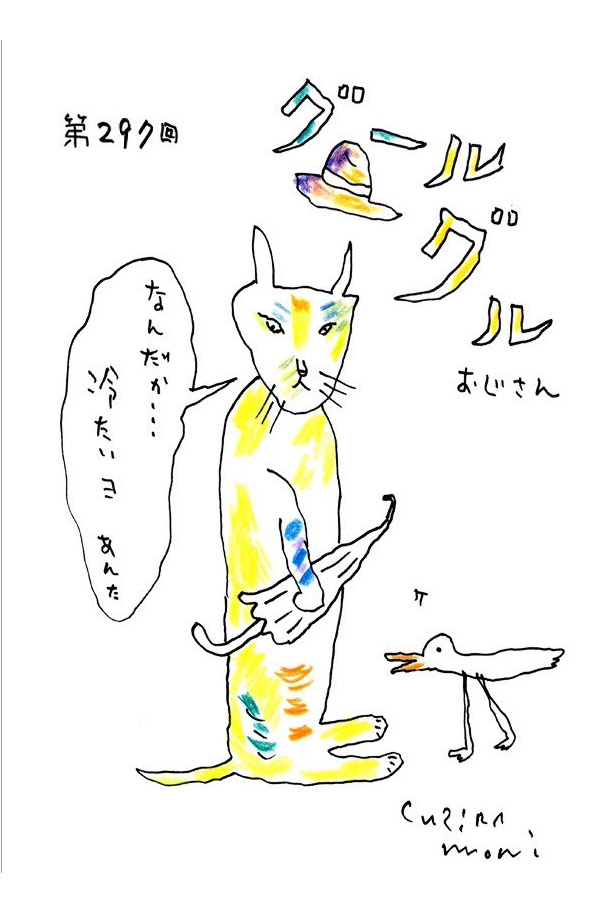 第297回
グールグル
おじさん
なんだか….
冷たいヨ あんた
ケ